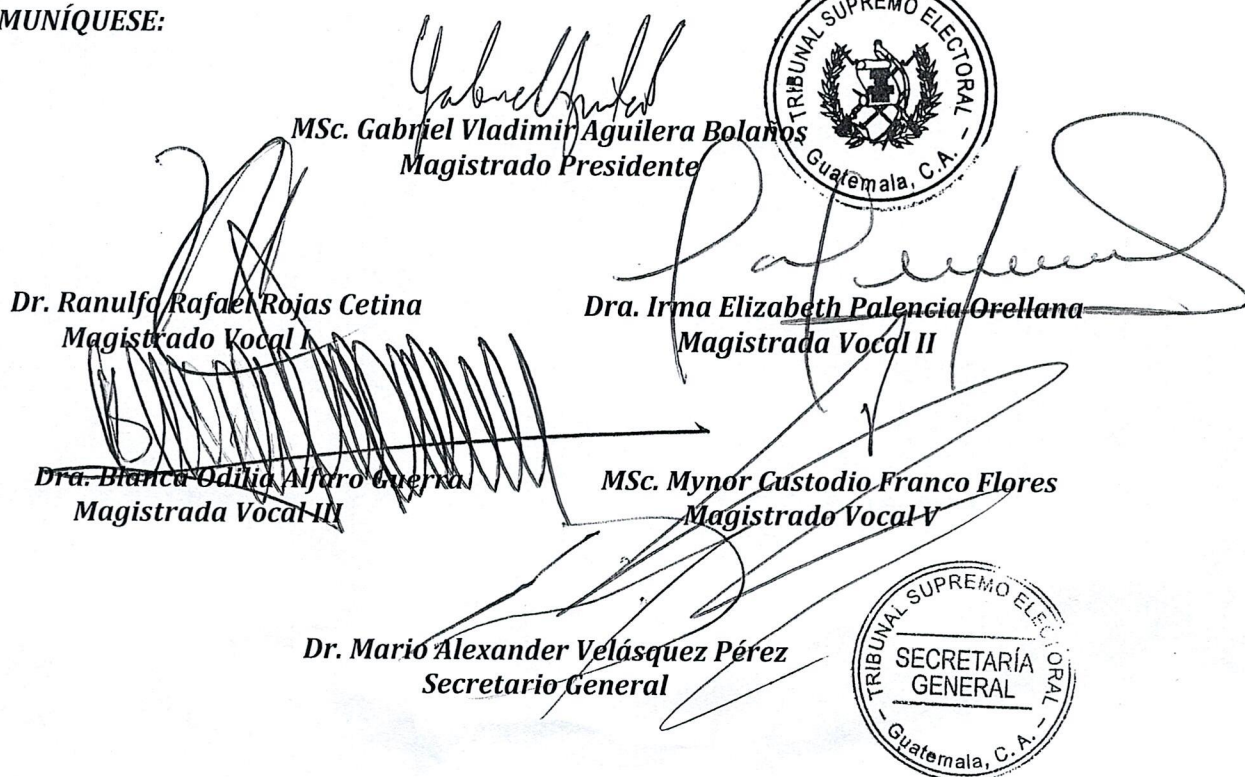 MUNÍQUESE:
TRIBUNAL SUPREMO ELECTORAL
Guatemala, C.A.
MSc. Gabriel Vladimir Aguilera Bolaños
Magistrado Presidente
Dr. Ranulfo Rafael Rojas Cetina
Magistrado Vocal I
Dra. Irma Elizabeth Palencia Orellana
Magistrada Vocal II
Dra. Blanca Odilia Alfaro Guerra
Magistrada Vocal III
MSc. Mynor Custodio Franco Flores
Magistrado Vocal V
Dr. Mario Alexander Velásquez Pérez
Secretario General
TRIBUNAL SUPREMO ELECTORAL
SECRETARÍA
GENERAL
Guatemala, C. A.